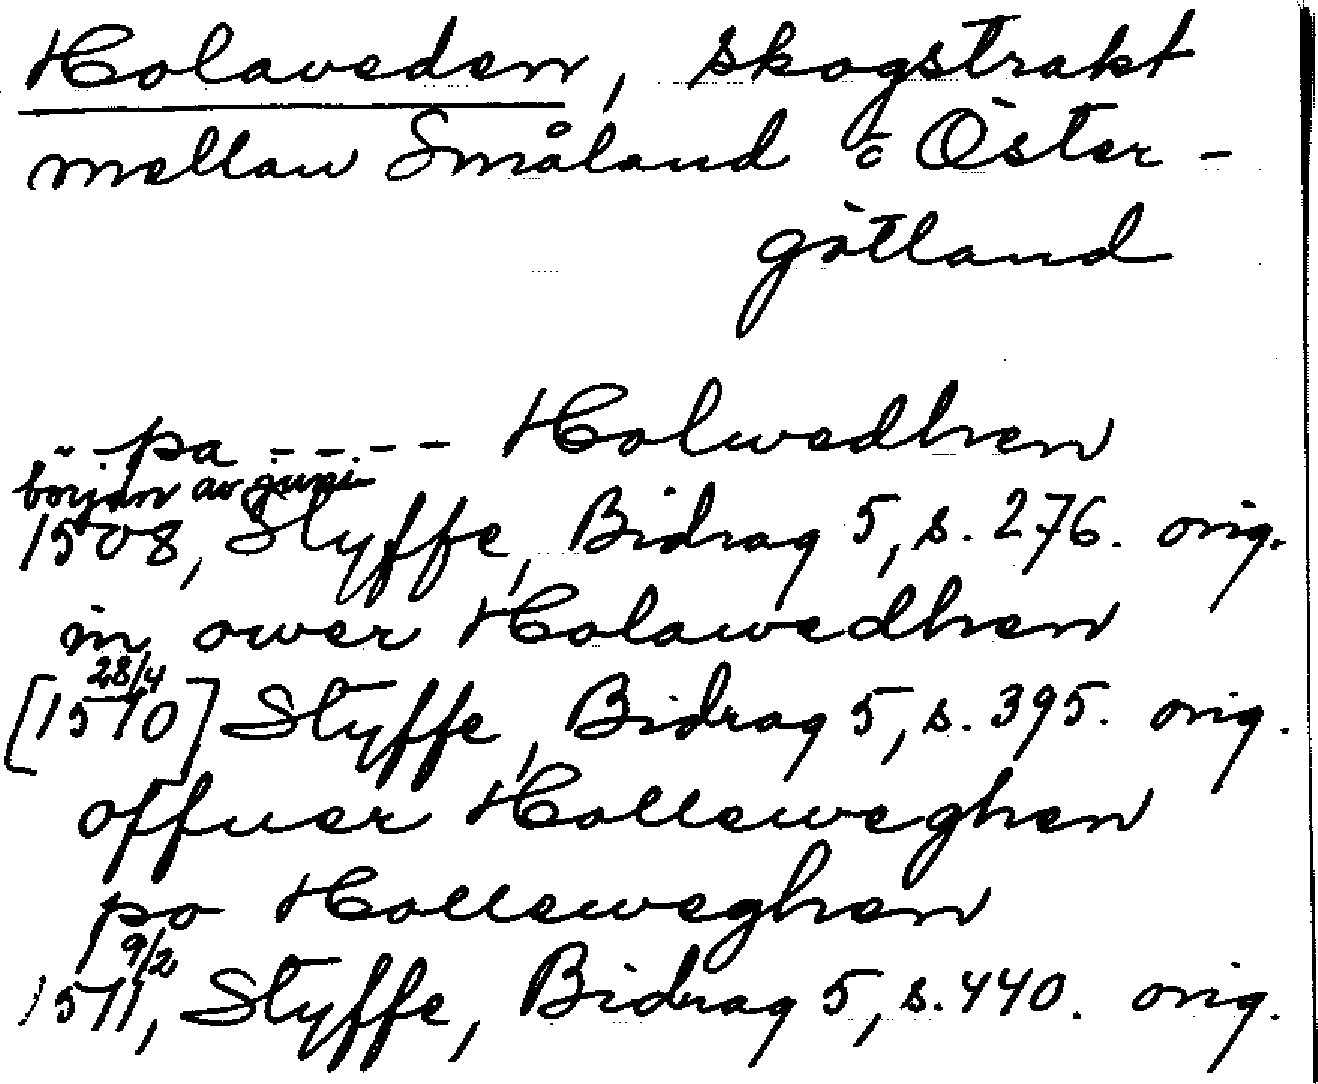 Holaveden, skogstrakt
mellan Småland o Öster-
götland
.. - pa - - - - Holwedhen
början av juni
1508, Styffe, Bidrag 5, s. 276. orig.
in ower Holawedhen
28/4
[1510] Styffe, Bidrag 5, s. 395. orig.
offuer Holleweghen
po Holleweghen
9/2
1511, Styffe, Bidrag 5, s. 440. orig.